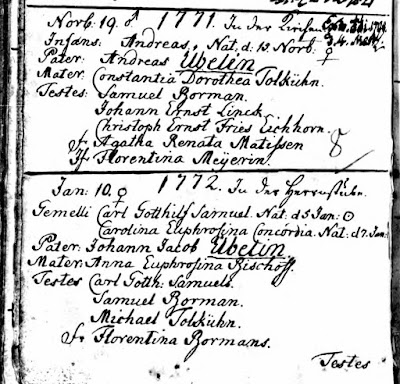 Novb: 19. ♂ 1771. In der Kirchen
Infans: Andreas, Nat. d. 13. Novb. ☿
Pater: Andreas Ubelin
Mater: Constantia Dorothea Tolkühn.
Testes: Samuel Borman.
Johann Ernst Linck.
Christoph Ernst Fries Eichhorn.
Agatha Renata Matissen
Florentina Meÿerin.
Jan: 10. ♀ 1772. In der Herrnstube.
Gemelli Carl Gotthilf Samuel. Nat: d 5 Jan: ⊙
Carolina Euphrosina Concordia. Nat: d 7. Jan:
Pater: Johann Jacob Ubelin
Mater: Anna Euphrosina Bischoff.
Testes Carl Gotth: Samuels.
Samuel Borman.
Michael Tolkühn.
Florentina Bormans.
Testes